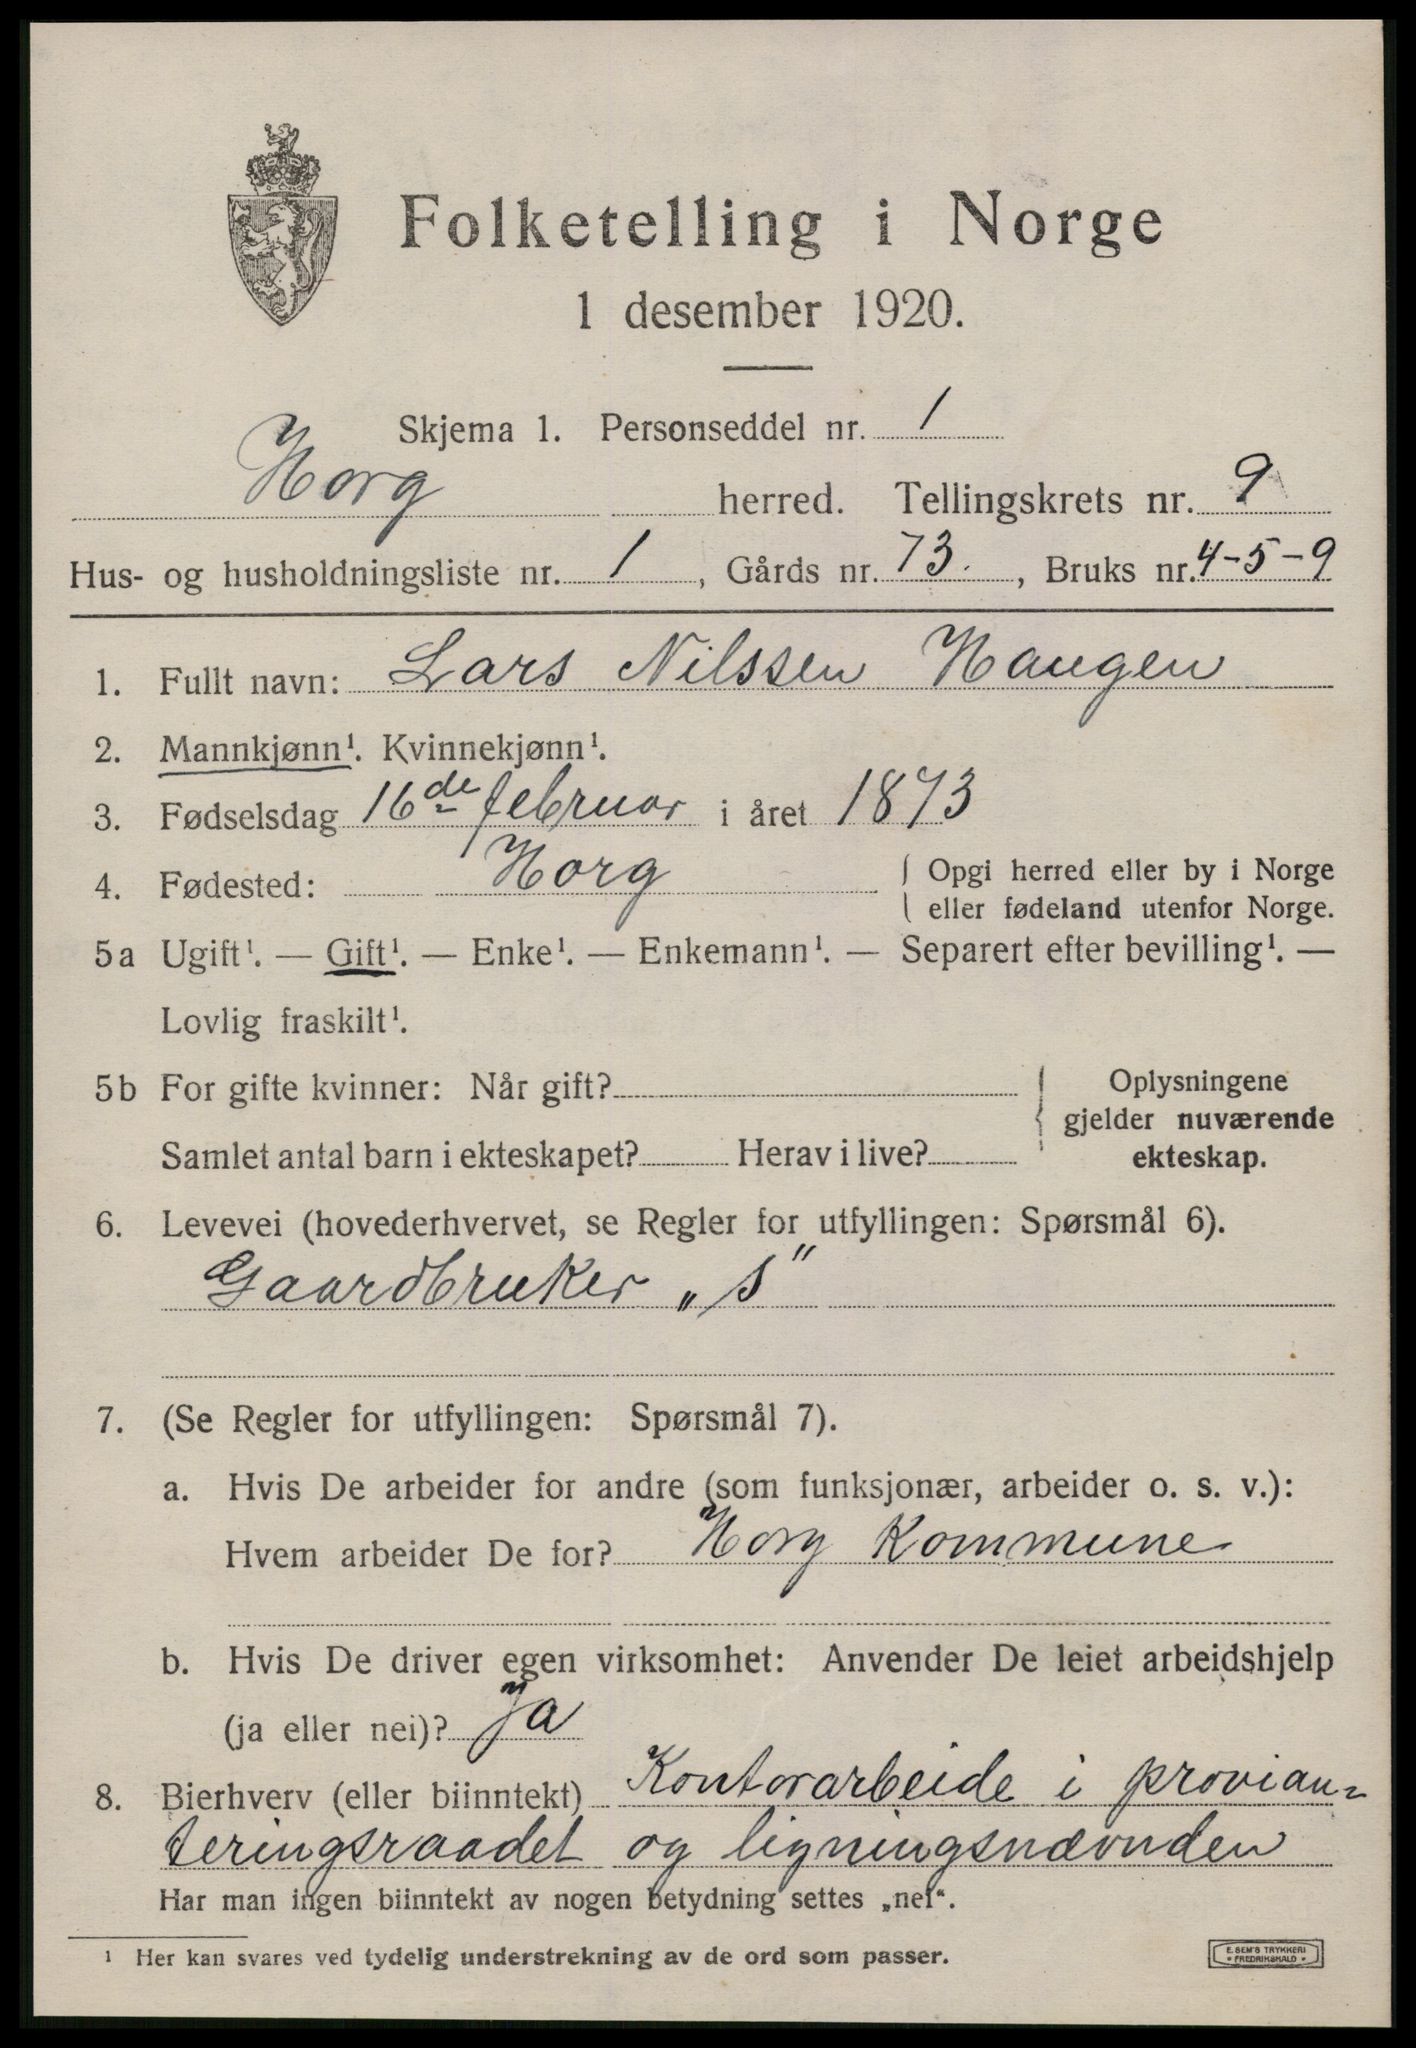 Folketelling i Norge
1 desember 1920.
Skjema 1. Personseddel nr. 1
Horg herred. Tellingskrets nr. 9
Hus- og husholdningsliste nr. 1, Gårds nr. 73., Bruks nr. 4-5-9
1. Fullt navn: Lars Nilssen Haugen
2. Mannkjønn¹. Kvinnekjønn¹.
3. Fødselsdag 16de februar i året 1873
4. Fødested: Horg { Opgi herred eller by i Norge
eller fødeland utenfor Norge.
5a Ugift¹. — Gift¹. — Enke¹. — Enkemann¹. — Separert efter bevilling¹. —
Lovlig fraskilt¹.
5b For gifte kvinner: Når gift? { Oplysningene
gjelder nuværende
Samlet antal barn i ekteskapet? Herav i live? ekteskap.
6. Levevei (hovederhvervet, se Regler for utfyllingen: Spørsmål 6).
Gaardbruker „S"
7. (Se Regler for utfyllingen: Spørsmål 7).
a. Hvis De arbeider for andre (som funksjonær, arbeider o. s. v.):
Hvem arbeider De for? Horg Kommune
b. Hvis De driver egen virksomhet: Anvender De leiet arbeidshjelp
(ja eller nei)? Ja
8. Bierhverv (eller biinntekt) Kontorarbeide i provian-
teringsraadet og ligningsnævnden
Har man ingen biinntekt av nogen betydning settes „nei".
¹ Her kan svares ved tydelig understrekning av de ord som passer.
E. SEM'S TRYKKERI
FREDRIKSHALD